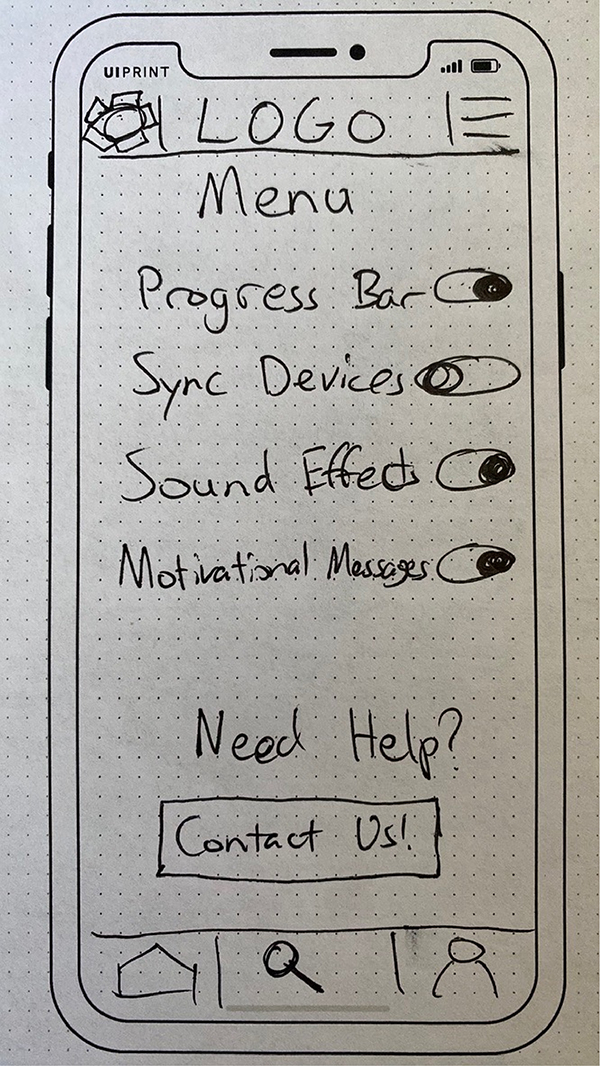 UIPRINT
LOGO
Menu
Progress Bar
Sync Devices
Sound Effects
Motivational Messages
Need Help?
Contact Us!